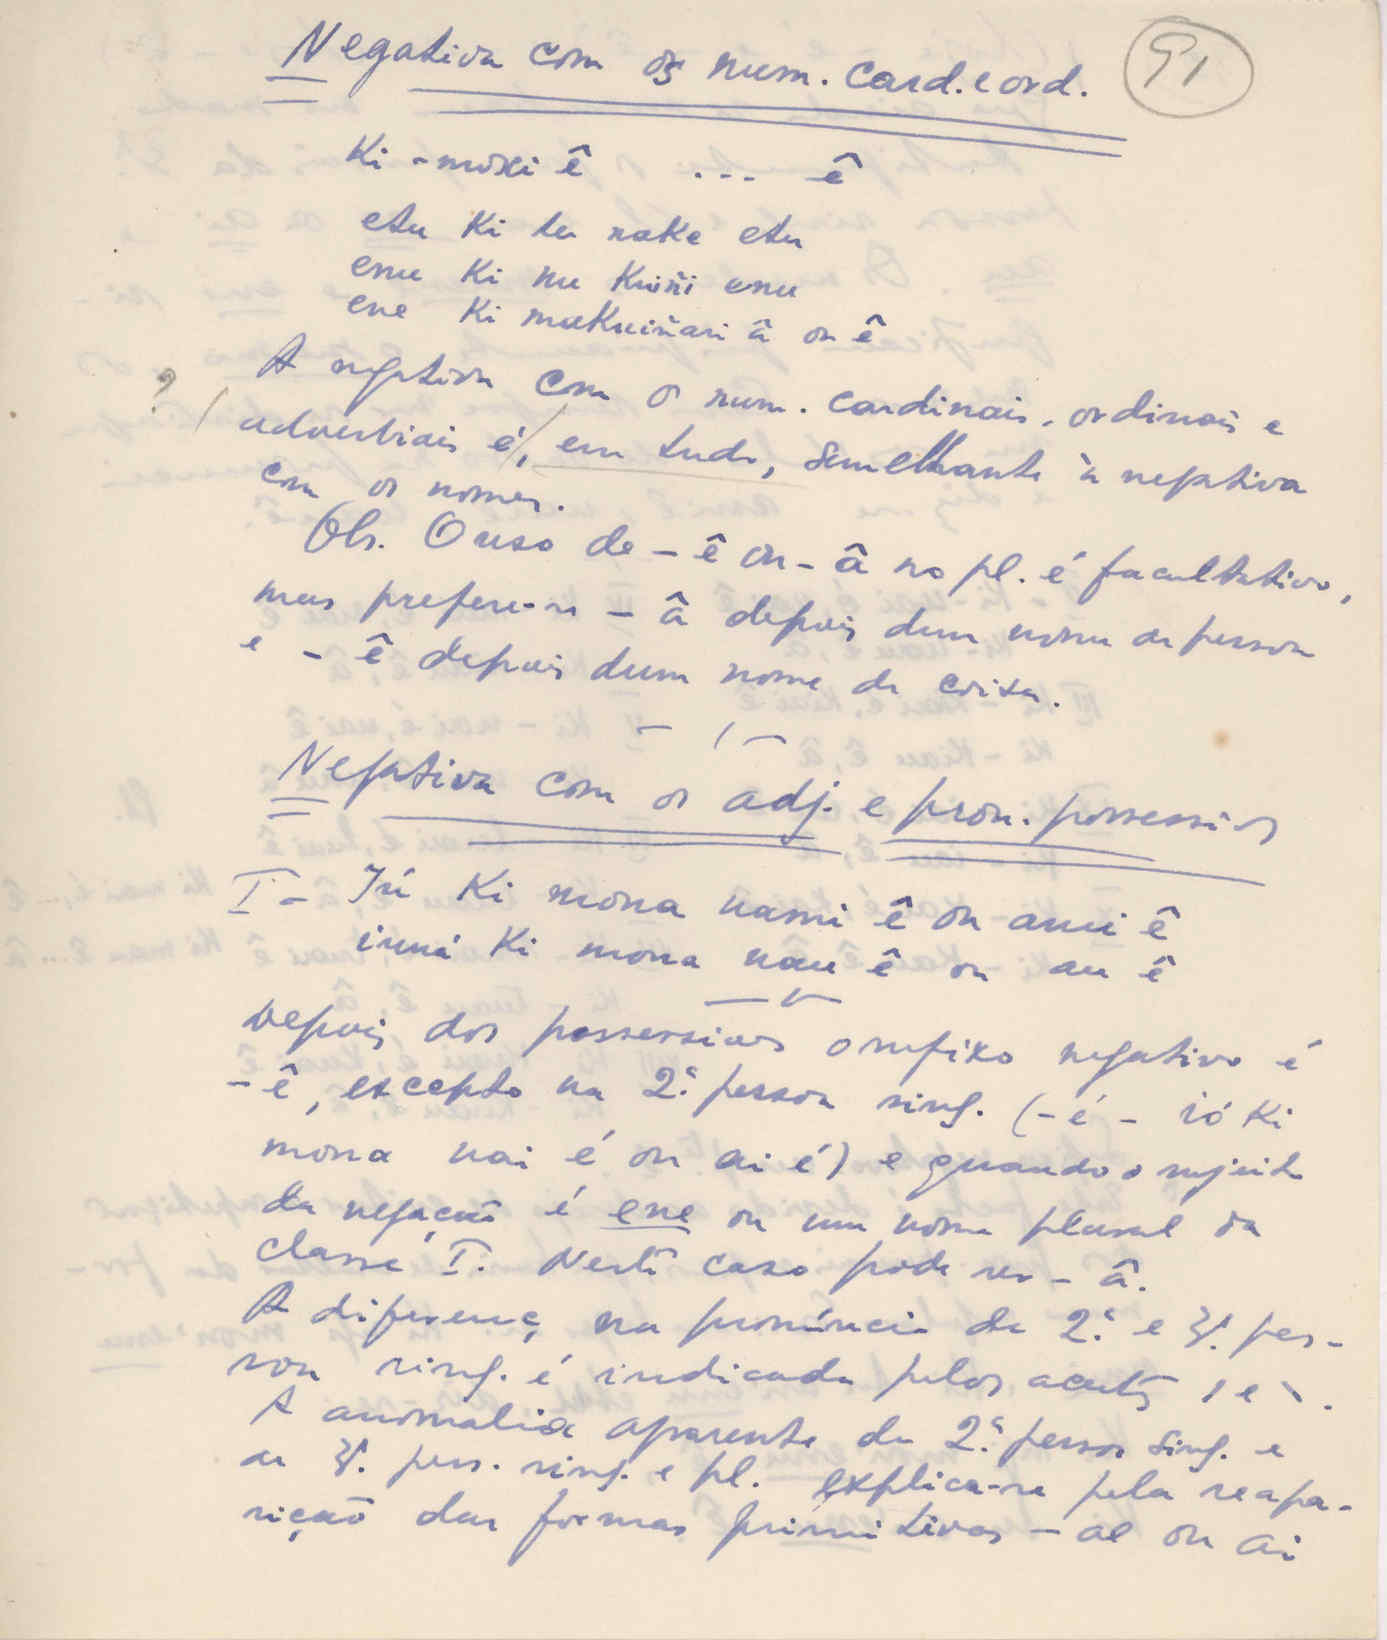 Negativa com os num. card. e ord.
91
Ki - moxi ê ... ê
etu Ki tu nake etu
enu Ki nu Kuiñi enu
ene Ki makuiñari â ou ê
A negativa com o num. cardinais, ordinais e
?
adverbiais é, em tudo, semelhante à negativa
com os nomes.
Obs. O uso de - ê ou - â no pl. é facultativo,
mas prefere-se - â depois dum nome de pessoa
e - ê depois dum nome de coisa.
Negativa com os adj. e pron. possessivos
I - Ki mona uami ê ou ami ê
Ki mona uau ê ou au ê
Depois dos possessivos o sufixo negativo é
- ê, excepto na 2.ª pessoa sing. (- é - ió Ki
mona uai é ou ai é) e quando o sujeito
da negação é ene ou um nome plural da
classe I. Neste caso pode ser - â.
A diferença na pronúncia da 2.ª e 3.ª pes-
soa sing. é indicada pelos acentos ´ e ` .
A anomalia aparente da 2.ª pessoa sing. e
da 3.ª pess. sing. e pl. explica-se pela reapa-
rição das formas primitivas - ae ou ai